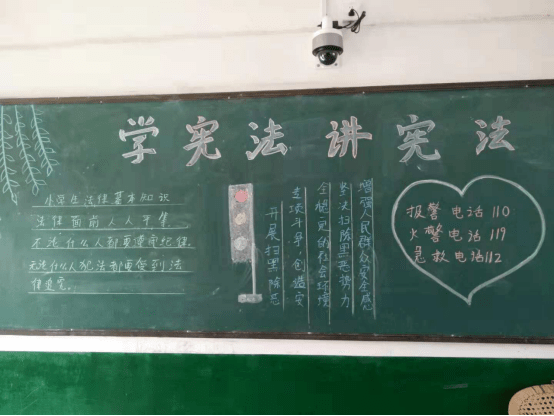 学宪法讲宪法
小学生法律基本知识
法律面前人人平等
不论什么人都要遵守纪律
无论什么人犯法都要受到法
律追究。
开展扫黑除恶
专项斗争，创造安
全健康的社会环境
坚决扫除黑恶势力
增强人民群众安全感
报警电话110
火警电话119
急救电话112